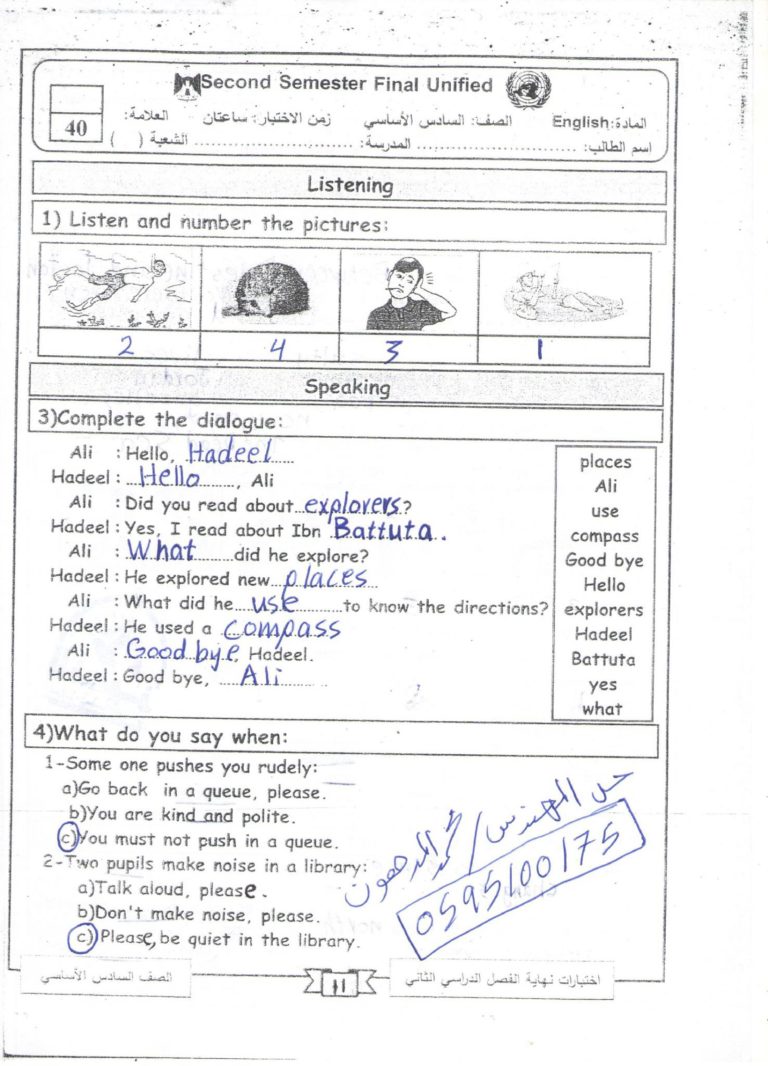 Second Semester Final Unified
المادة: English الصف: السادس الأساسي زمن الاختبار: ساعتان العلامة:
40
اسم الطالب: ........................ المدرسة: ........................ الشعبة ( )
Listening
1) Listen and number the pictures:
2 4 3 1
Speaking
3)Complete the dialogue:
Ali : Hello, Hadeel
Hadeel : Hello, Ali
Ali : Did you read about explorers?
Hadeel : Yes, I read about Ibn Battuta.
Ali : What did he explore?
Hadeel : He explored new places
Ali : What did he use to know the directions?
Hadeel : He used a compass
Ali : Good bye, Hadeel.
Hadeel : Good bye, Ali
places
Ali
use
compass
Good bye
Hello
explorers
Hadeel
Battuta
yes
what
4)What do you say when:
1-Some one pushes you rudely:
a)Go back in a queue, please.
b)You are kind and polite.
c)You must not push in a queue.
2-Two pupils make noise in a library:
a)Talk aloud, please.
b)Don't make noise, please.
c)Please, be quiet in the library.
حل المهندس / محمد المدهون
0595100175
الصف السادس الأساسي
11
اختبارات نهاية الفصل الدراسي الثاني